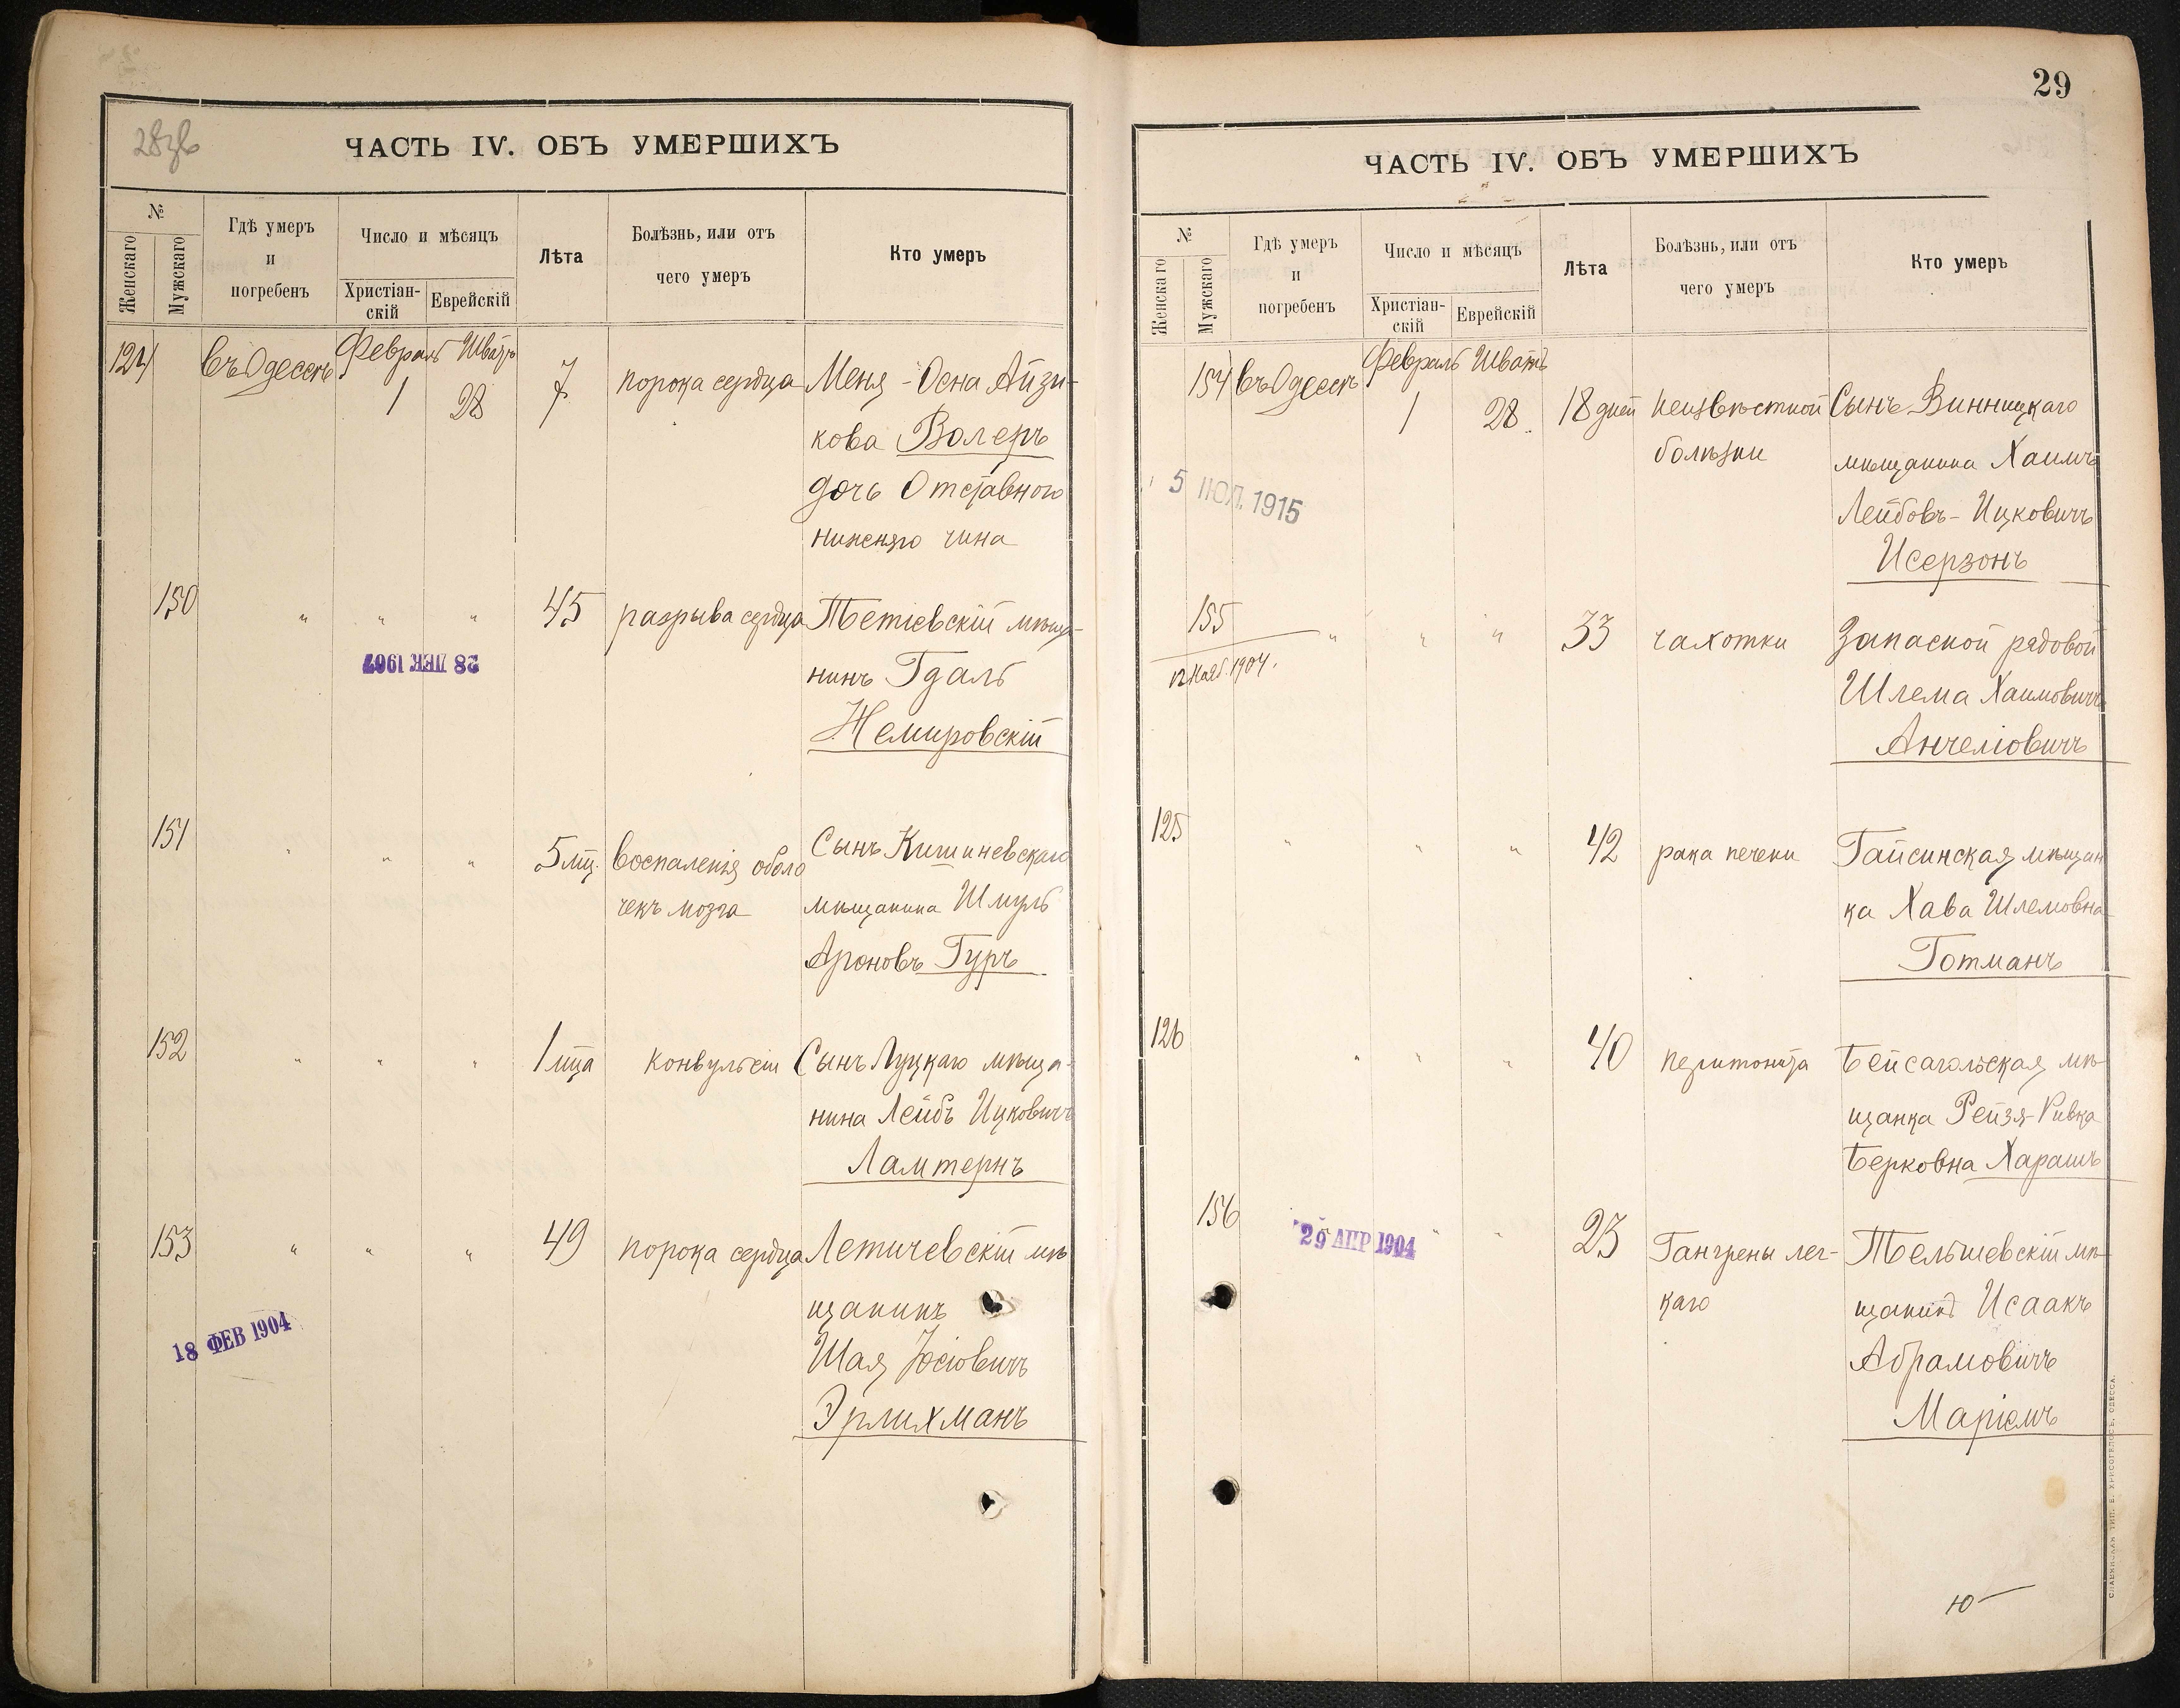 28
ЧАСТЬ IV. ОБЪ УМЕРШИХЪ
№
Женскаго
Мужскаго
Гдѣ умеръ
и
погребенъ
Число и мѣсяцъ
Христіан-
скій
Еврейскій
Лѣта
Болѣзнь, или отъ
чего умеръ
Кто умеръ
124 въ Одессѣ Февраль Шватъ
1 28 7 порока сердца Меня-Осна Айзи-
кова Волеръ
дочь Отставного
нижняго чина
150 " " " 45 разрыва сердца Тетіевскій мѣща-
нинъ Гдаль
Немировскій
28 ДЕК 1907
151 " " " 5 мц. воспаленія оболо
чекъ мозга
Сынъ Кишиневскаго
мѣщанина Шмуль
Ароновъ Гуръ
152 " " " 1 мца конвульсіи Сынъ Луцкаго мѣща-
нина Лейбъ Ицковичъ
Ламтернъ
153 " " " 49 порока сердца Летичевскій мѣ
щанинъ
Шая Іосіовичъ
Эрлихманъ
18 ФЕВ 1904
29
ЧАСТЬ IV. ОБЪ УМЕРШИХЪ
№
Женскаго
Мужскаго
Гдѣ умеръ
и
погребенъ
Число и мѣсяцъ
Христіан-
скій
Еврейскій
Лѣта
Болѣзнь, или отъ
чего умеръ
Кто умеръ
154 въ Одессѣ Февраль Шватъ
1 28 18 дней неизвѣстной
болѣзни
Сынъ Винницкаго
мѣщанина Хаимъ
Лейбовъ-Ицковичъ
Исерзонъ
5 ІЮЛ. 1915
155 " " " 33 чахотки Запасной рядовой
Шлема Хаимовичъ
Анчеліовичъ
12 Нояб. 1904.
125 " " " 42 рака печени Гайсинская мѣщан
ка Хава Шлемовна
Готманъ
126 " " " 40 перитонита Бейсагольская мѣ-
щанка Рейзя-Ривка
Берковна Харашъ
156 " " 23 Гангрены лег-
каго
Тельшевскій мѣ-
щанинъ Исаакъ
Абрамовичъ
Маріемъ
29 АПР 1904
Ю
СЛАВЯНСКАЯ ТИП. Е. ХРИСОГЕЛОСЪ, ОДЕССА.